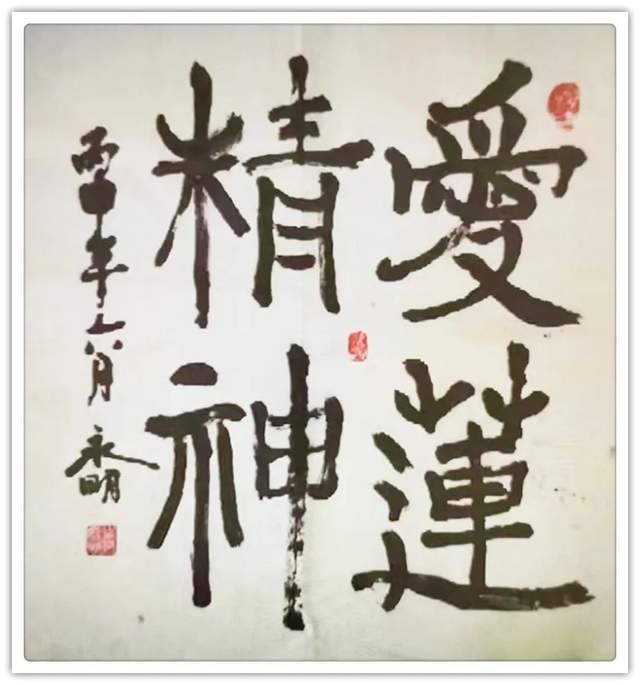 愛蓮
精神
丙申年六月
永明